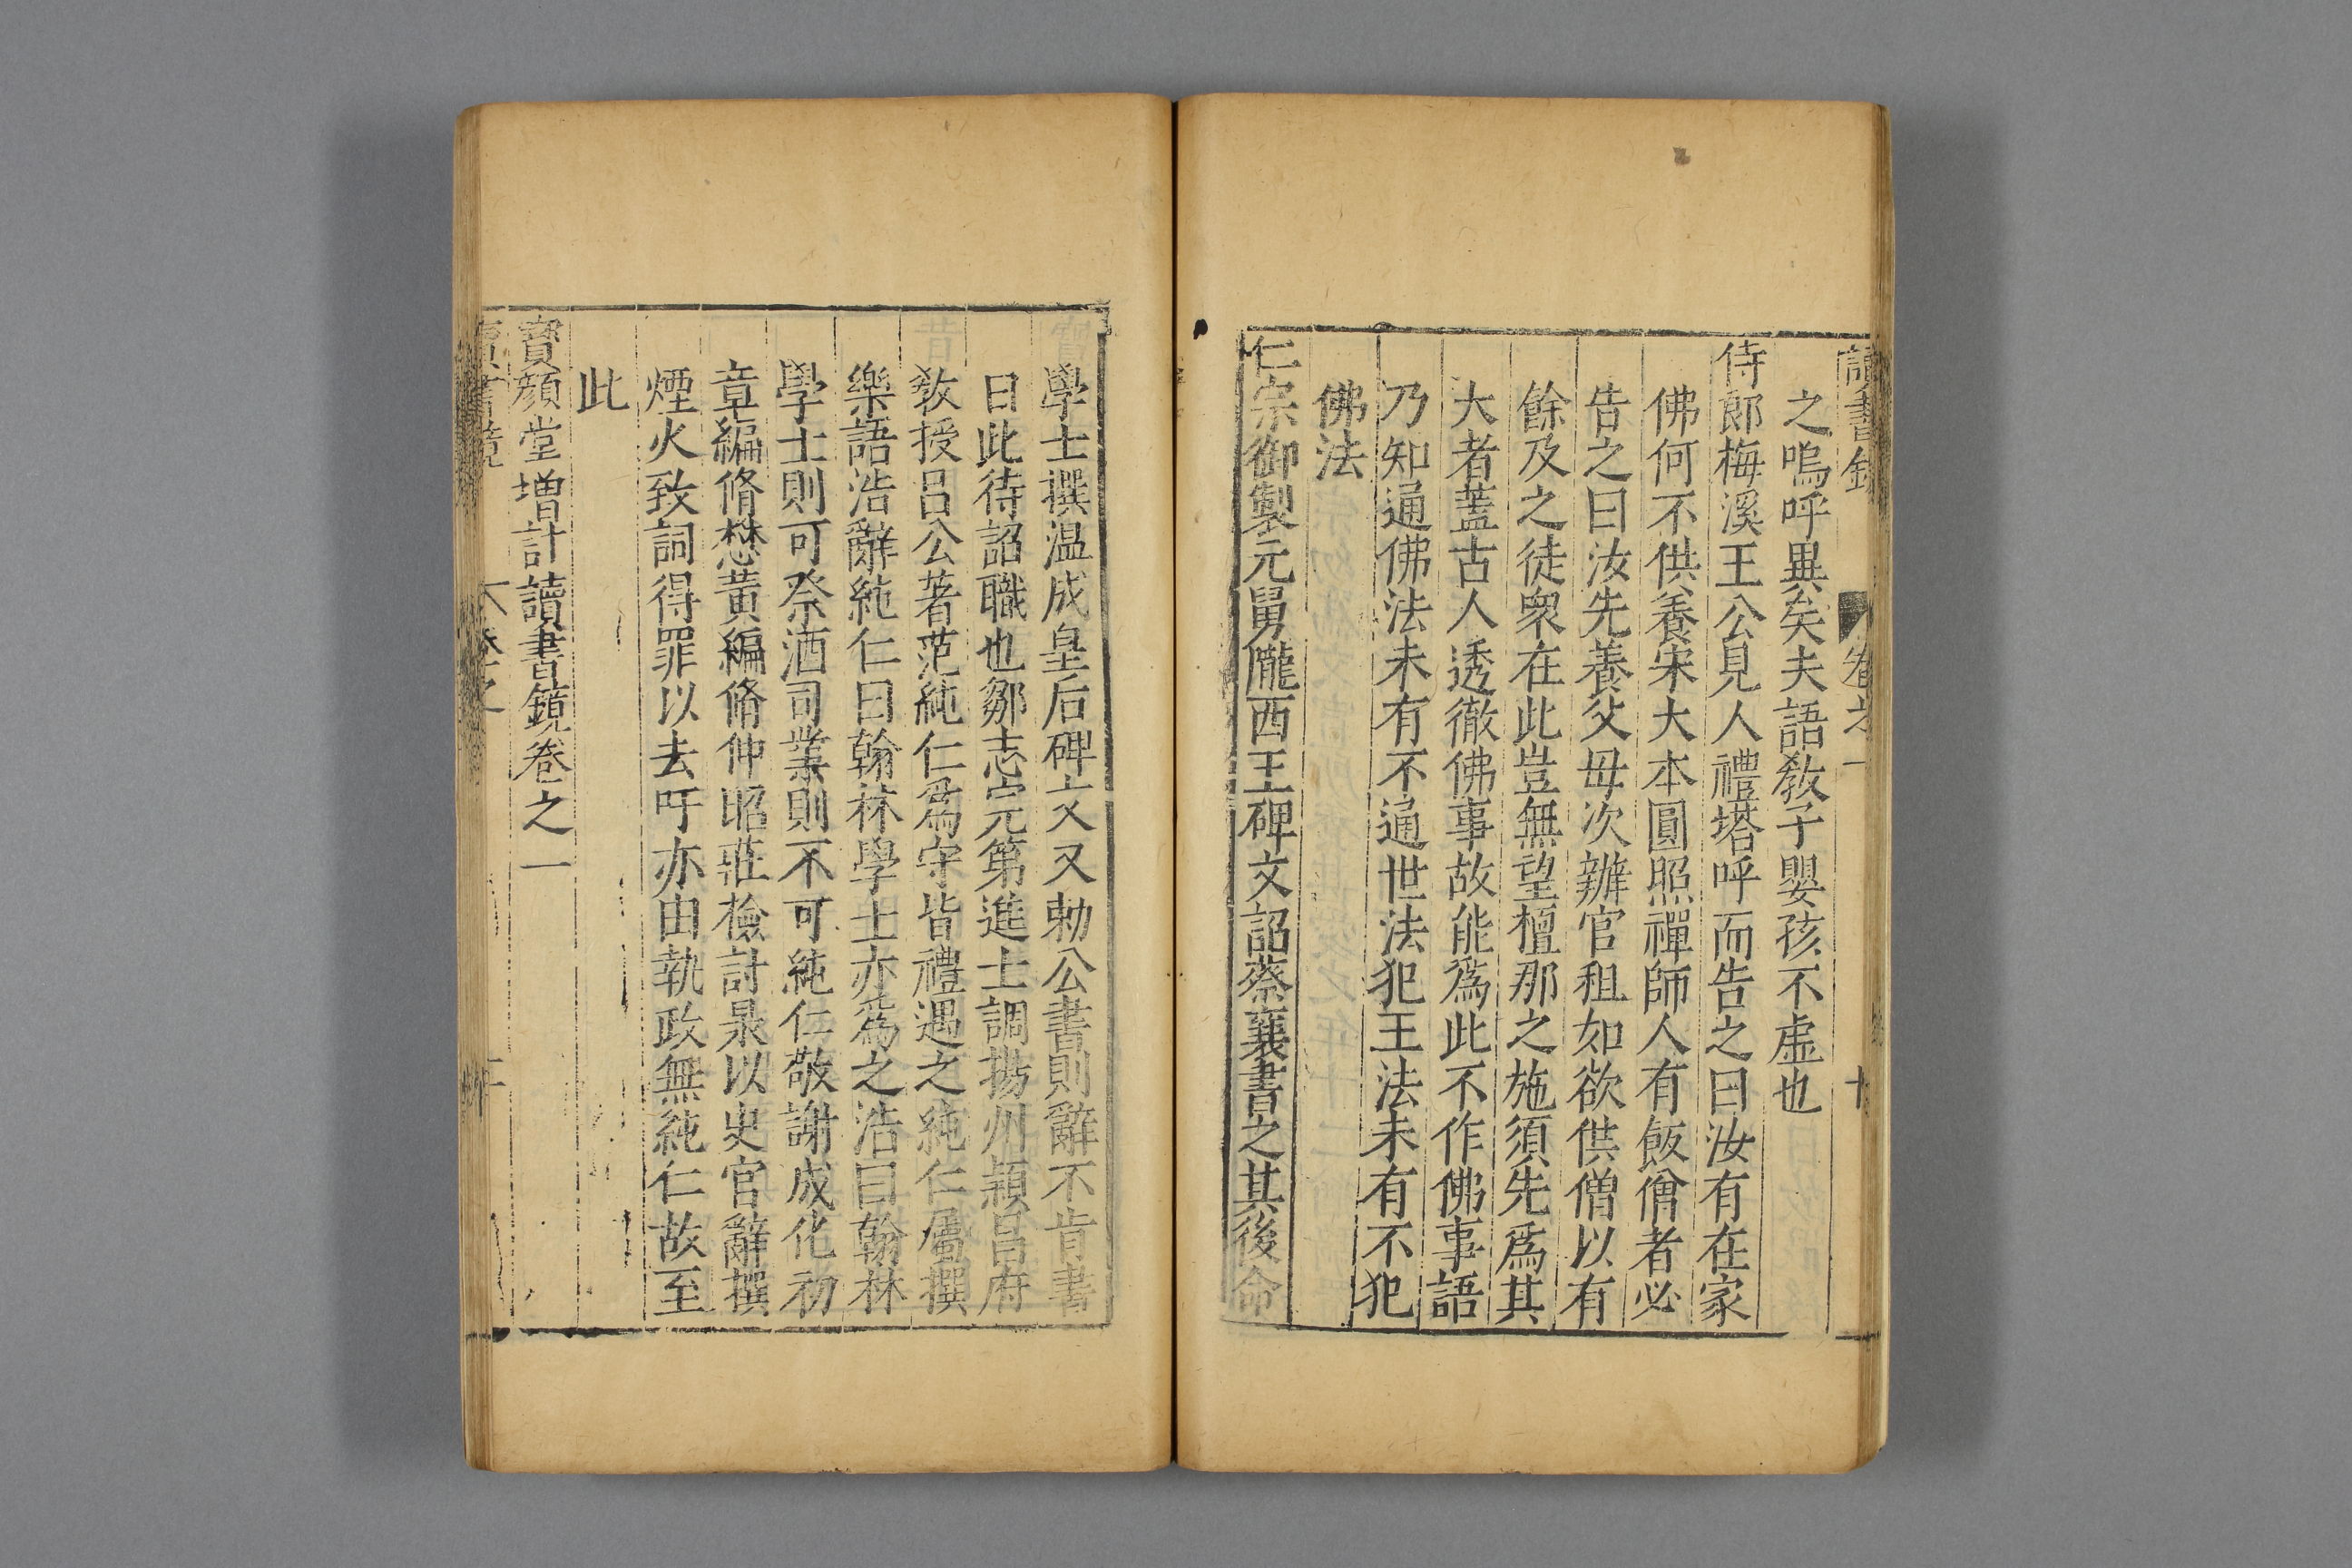 讀書鏡 卷之一 十
之嗚呼異矣夫語敎子嬰孩不虛也
侍郎梅溪王公見人禮塔呼而告之曰汝有在家
佛何不供養宋大本圓照禪師人有飯僧者必
告之曰汝先養父母次辦官租如欲供僧以有
餘及之徒衆在此豈無望檀那之施須先爲其
大者蓋古人透徹佛事故能爲此不作佛事語
乃知通佛法未有不通世法犯王法未有不犯
佛法
仁宗御製元舅儱西王碑文詔蔡襄書之其後命
學士撰温成皇后碑文又勅公書則辭不肯書
曰此待詔職也鄒志完第進士調揚州穎昌府
敎授呂公著范純仁爲守皆禮遇之純仁屬撰
樂語浩辭純仁曰翰林學士亦爲之浩曰翰林
學士則可祭酒司業則不可純仁敬謝成化初
章編脩懋黄編脩仲昭莊檢討㫤以史官辭撰
煙火致詞得罪以去吁亦由執政無純仁故至
此
寶顔堂增計讀書鏡卷之一